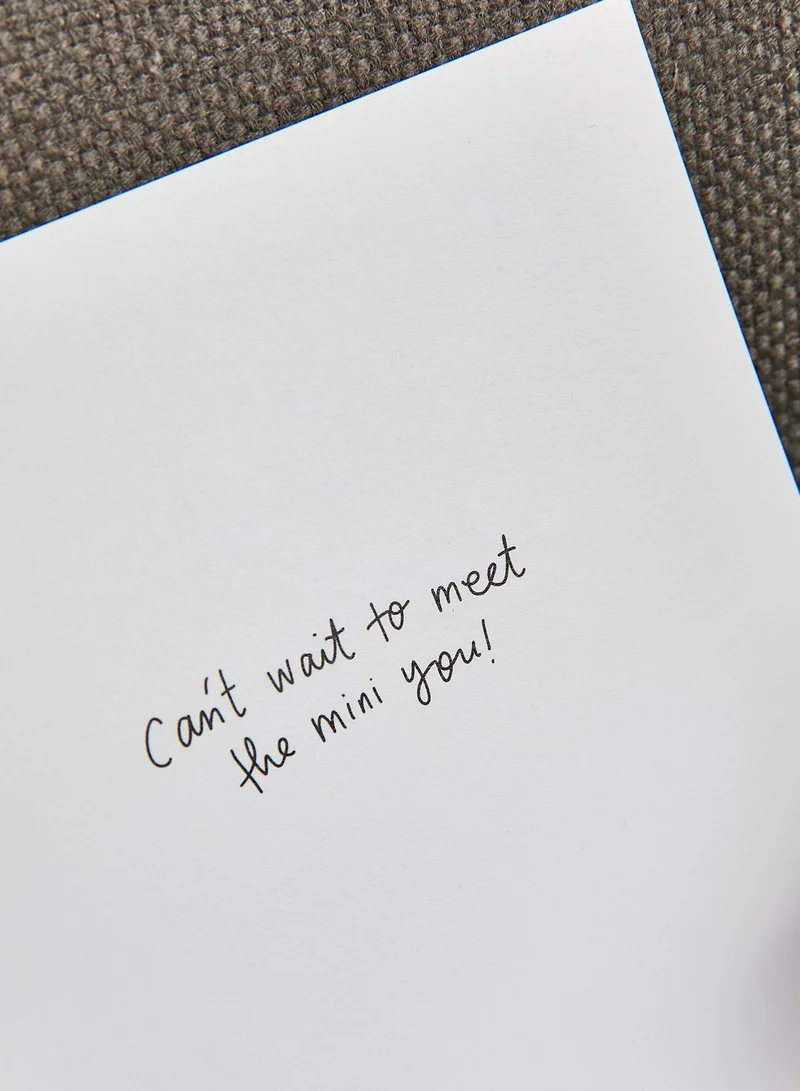 Can't wait to meet
the mini you!